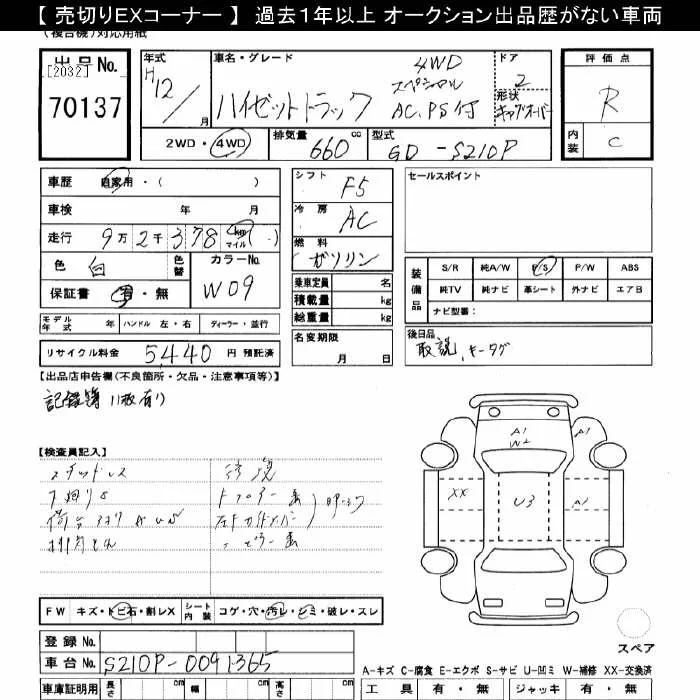 【 売切りEXコーナー 】 過去1年以上 オークション出品歴がない車両
(複合機)対応用紙
出品No. [2032] 70137
年式 H12/ 月
車名・グレード ハイゼットトラック 4WD スペシャル AC,PS付
ドア 2
形状 キャブオーバー
評価点 R
内装 C
2WD・4WD
排気量 660 cc
型式 GD-S210P
車歴 自家用・( )
車検 年 月
走行 9万2千378 km マイル ( )
色 白 色替 カラーNo. W09
保証書 有・無
モデル年式 年 ハンドル 左・右 ディーラー・並行
リサイクル料金 5,440 円 預託済
シフト F5
冷房 AC
燃料 ガソリン
乗車定員 名
積載量 kg
総重量 kg
名変期限 月 日
セールスポイント
装備品 S/R 純A/W P/S P/W ABS
純TV 純ナビ 革シート 外ナビ エアB
ナビ型番:
後日品
取説、キータグ
【出品店申告欄(不良箇所・欠品・注意事項等)】
記録簿11枚有り
【検査員記入】
スタッドレス
下廻りS
A1
W2
A1
XX
U3
A1
FW キズ・トビ石・割レX シート内装 コゲ・穴・汚レ・シミ・破レ・スレ
登録No.
車台No. S210P-0091365
スペア
A-キズ C-腐食 E-エクボ S-サビ U-凹ミ W-補修 XX-交換済
車庫証明用 長さ cm 幅 cm 高さ cm
工具 有・無 ジャッキ 有・無